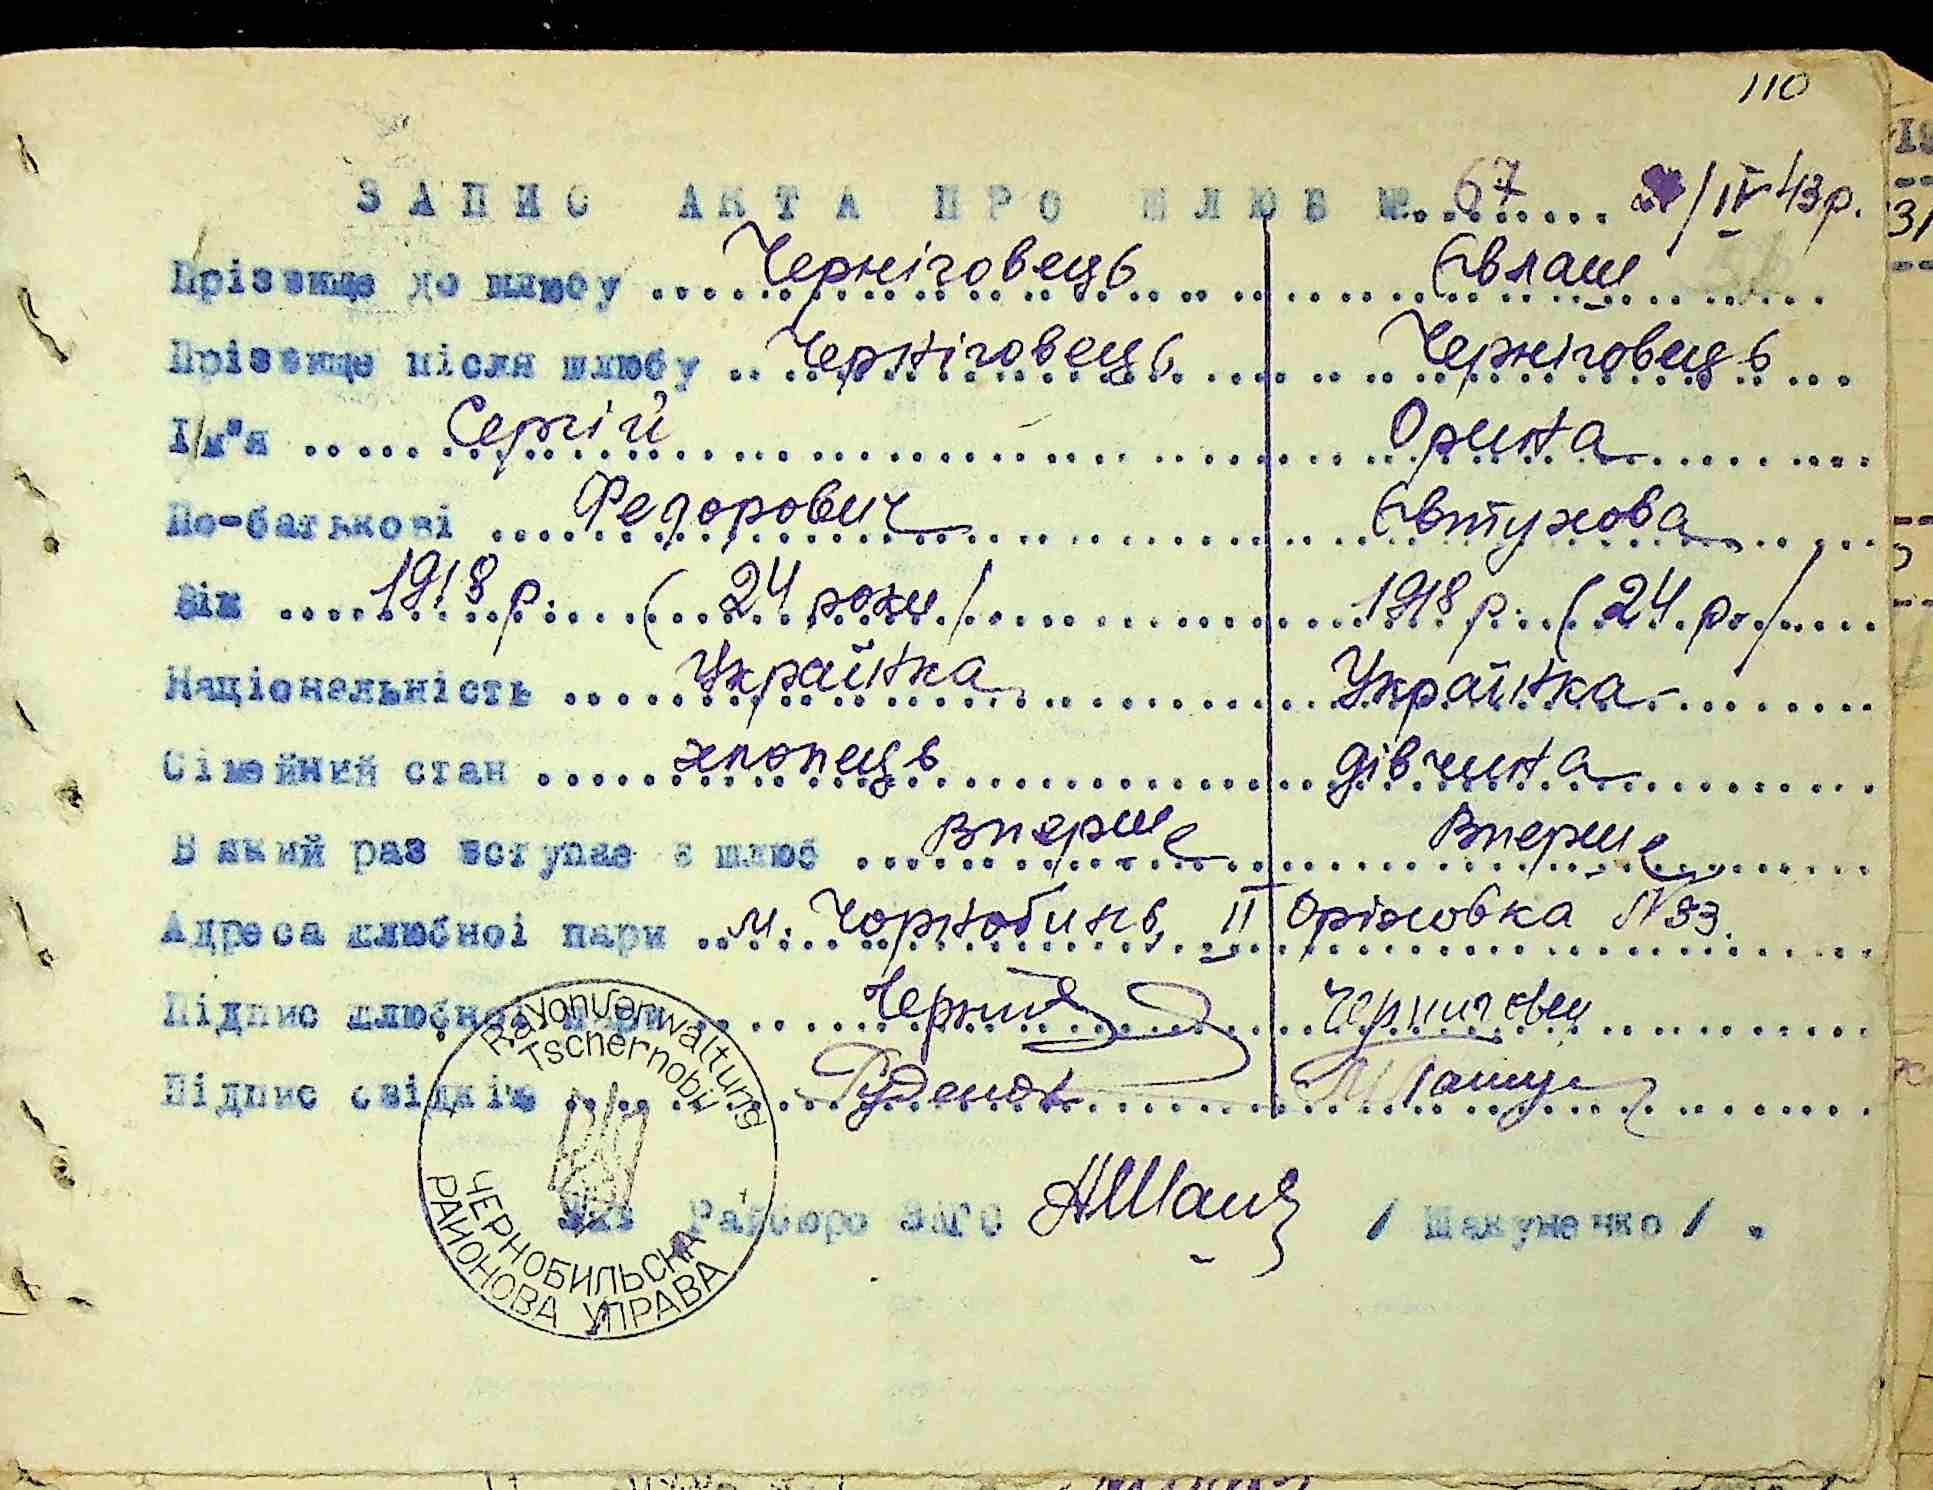 110
ЗАПИС АКТА ПРО ШЛЮБ №. 67 /IV 43р.
Прізвище до шлюбу Черніговець Євлаш
Прізвище після шлюбу Черніговець Черніговець
Ім'я Сергій Орина
По-батькові Федорович Євтухова
Вік 1918 р. (24 роки/ 1918 р. (24 р./
Національність Українка Українка
Сімейний стан хлопець дівчина
В який раз вступає в шлюб Вперше Вперше
Адреса шлюбної пари м. Чорнобиль, II Оріховка №
Підпис шлюбної пари
Підпис свідків Руденок
Rayonverwaltung
Tschernobyl
ЧЕРНОБИЛЬСКА
РАЙОНОВА УПРАВА
Зав Райбюро ЗАГС / Шакуненко / .